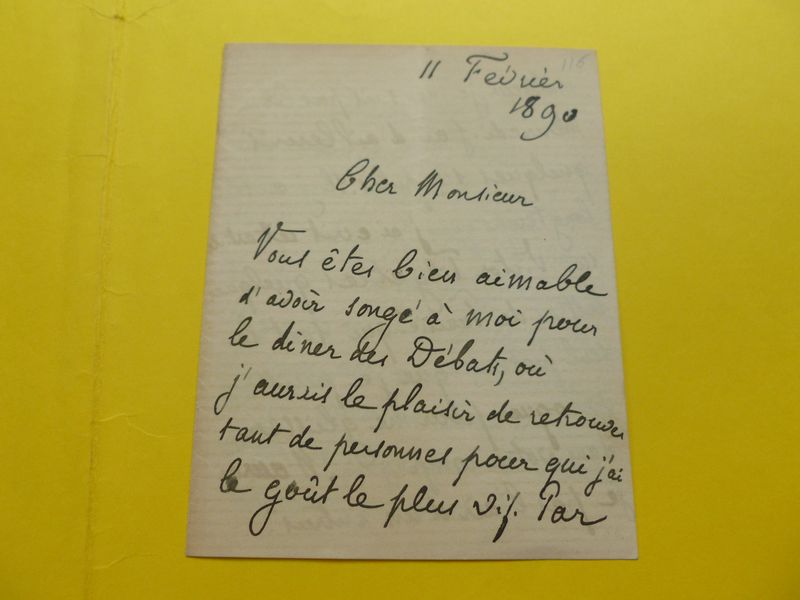 116
11 Février
1890
Cher Monsieur
Vous êtes bien aimable
d'avoir songé à moi pour
le dîner des Débats, où
j'aurais le plaisir de retrouver
tant de personnes pour qui j'ai
le goût le plus vif. Par